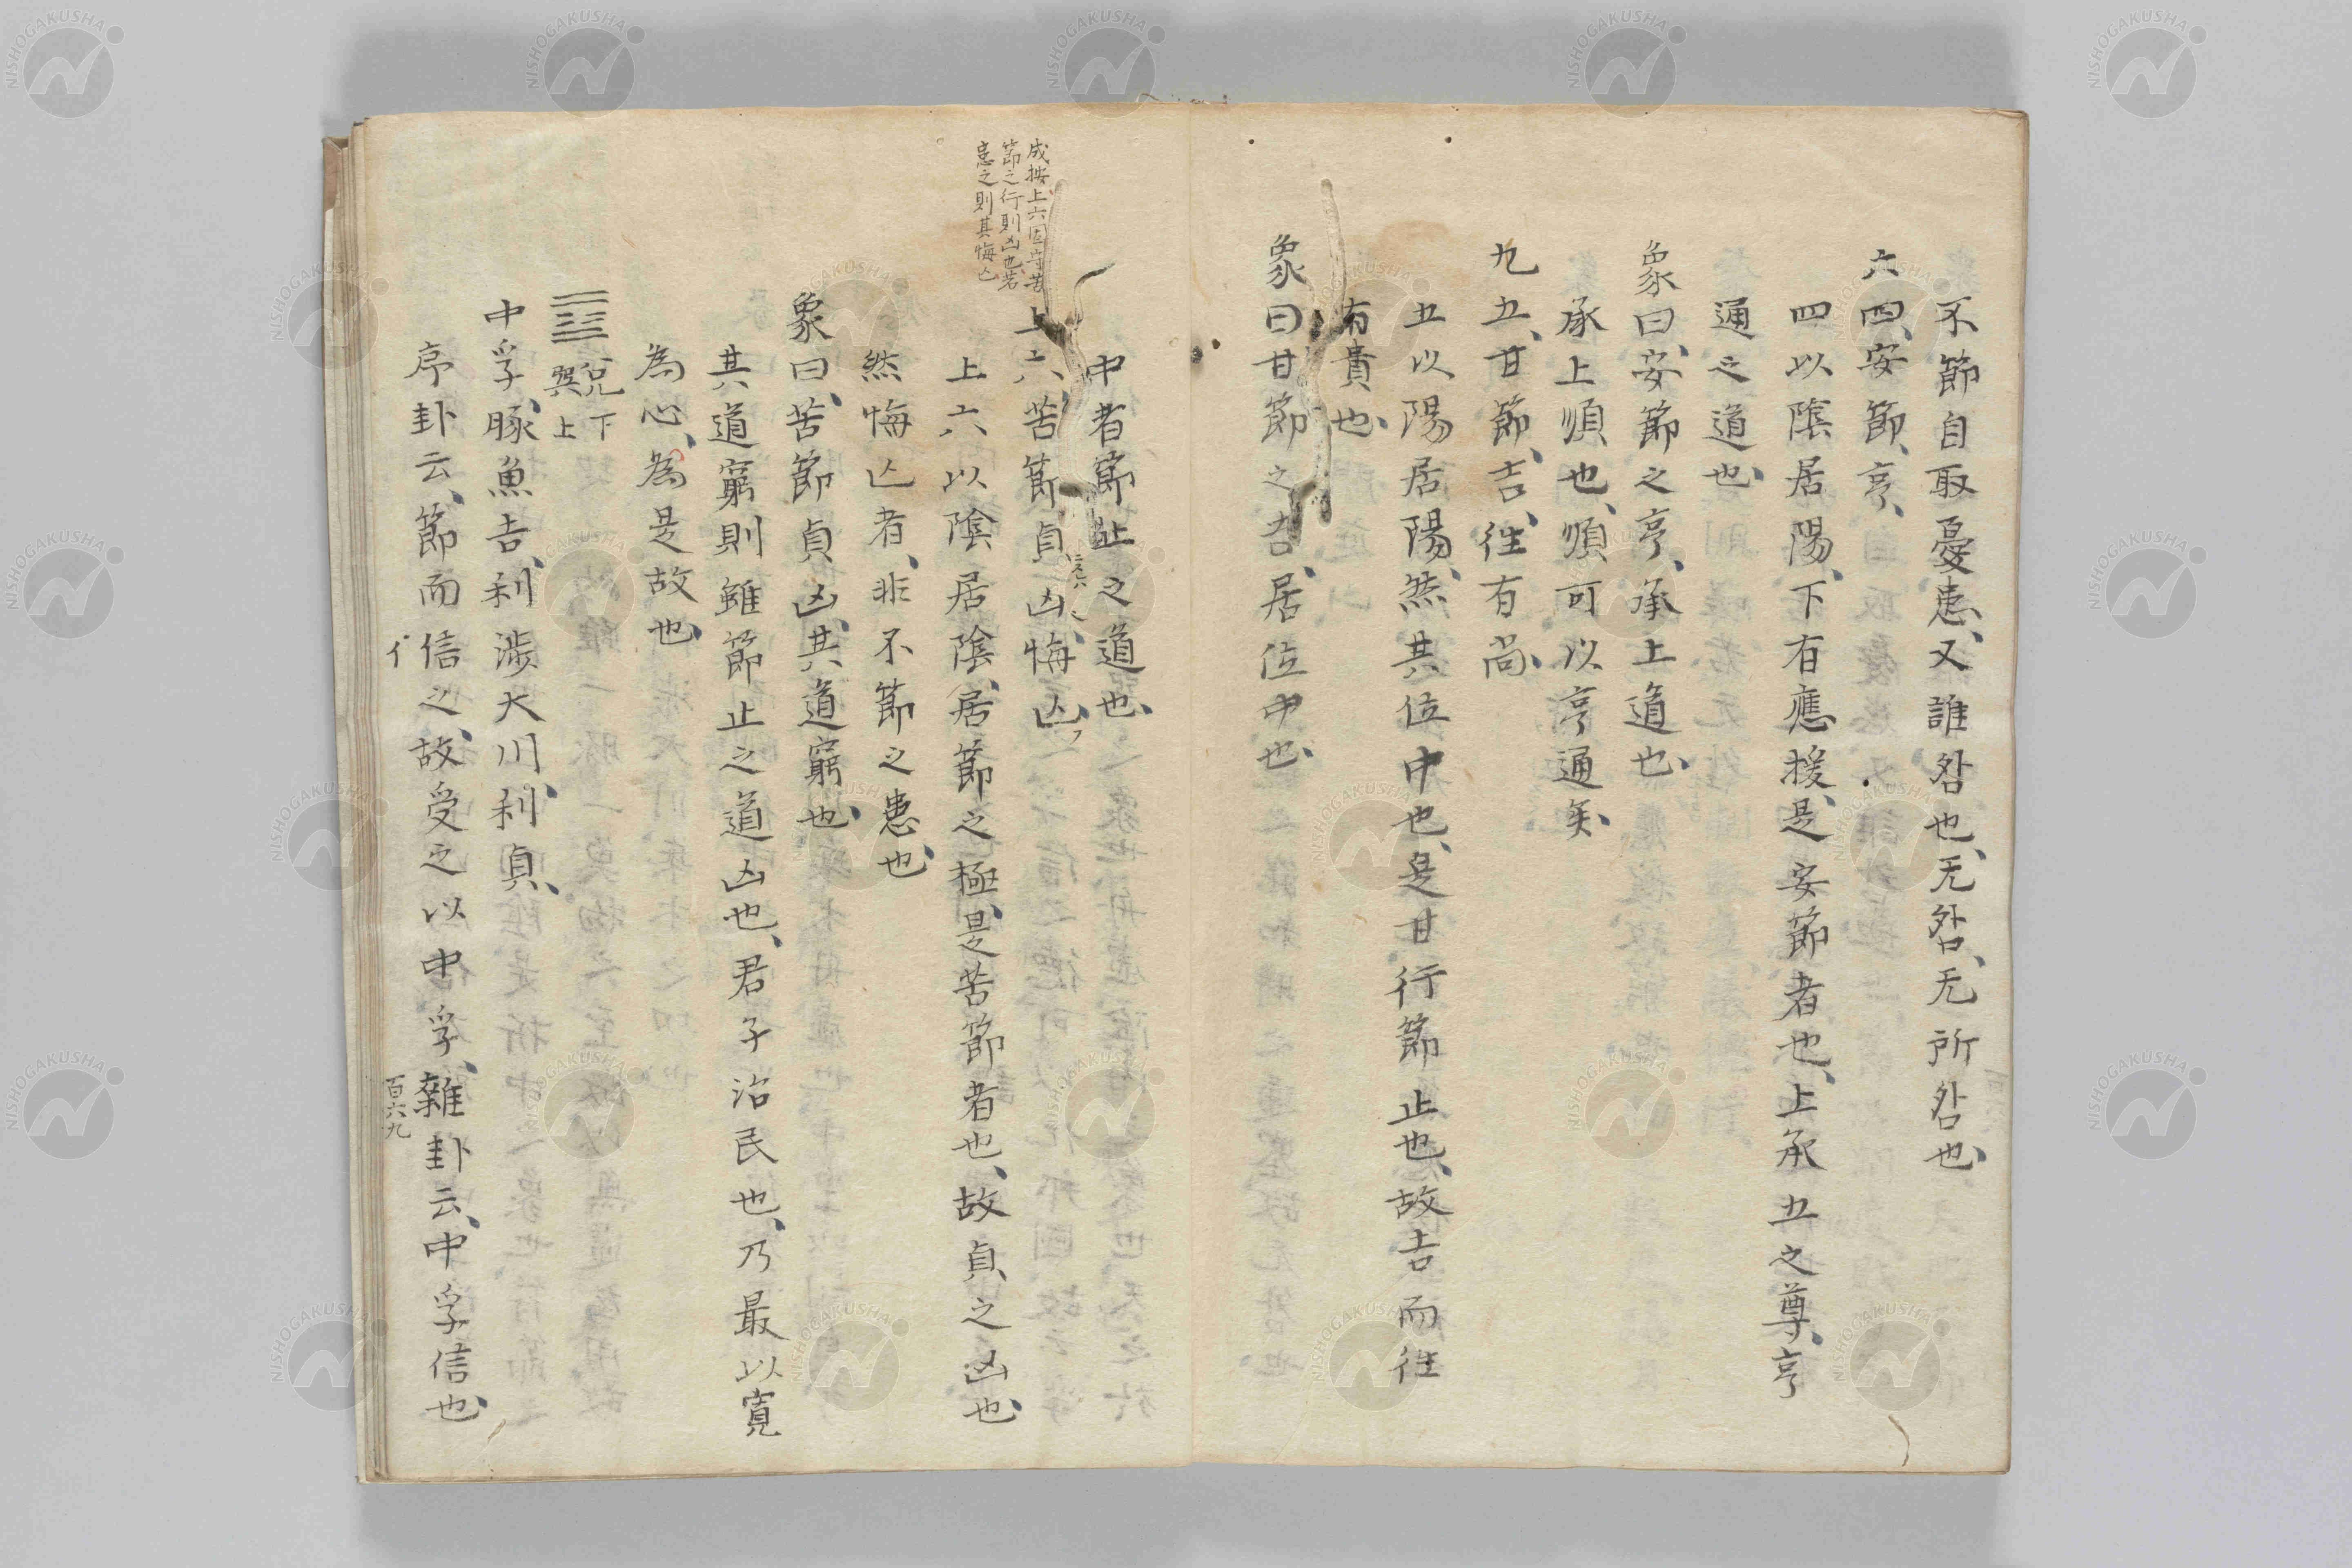 不節自取憂患、又誰咎也、无咎、无所咎也、
六四、安節、亨、
四以陰居陽、下有應援、是安節者也、上承五之尊、亨
通之道也、
象曰、安節之亨、承上道也、
承上順也、順可以亨通矣、
九五、甘節、吉、往有尚、
五以陽居陽、然其位中也、是甘行節止也、故吉而往
有貴也、
象曰、甘節之吉、居位中也、
中者節止之道也、
成按上六固守苦
節之行則凶也、若
患之則其悔亡
上六、苦節貞凶、悔亡、
上六以陰居陰、居節之極、是苦節者也、故貞之凶也、
然悔亡者、非不節之患也、
象曰、苦節貞凶、其道窮也、
其道窮則雖節止之道凶也、君子治民也、乃最以寛
為心、為是故也、
䷼ 兌下
巽上
中孚、豚魚吉、利渉大川、利貞、
序卦云、節而信之、故受之以中孚、雜卦云、中孚信也、
百六九
NISHOGAKUSHA